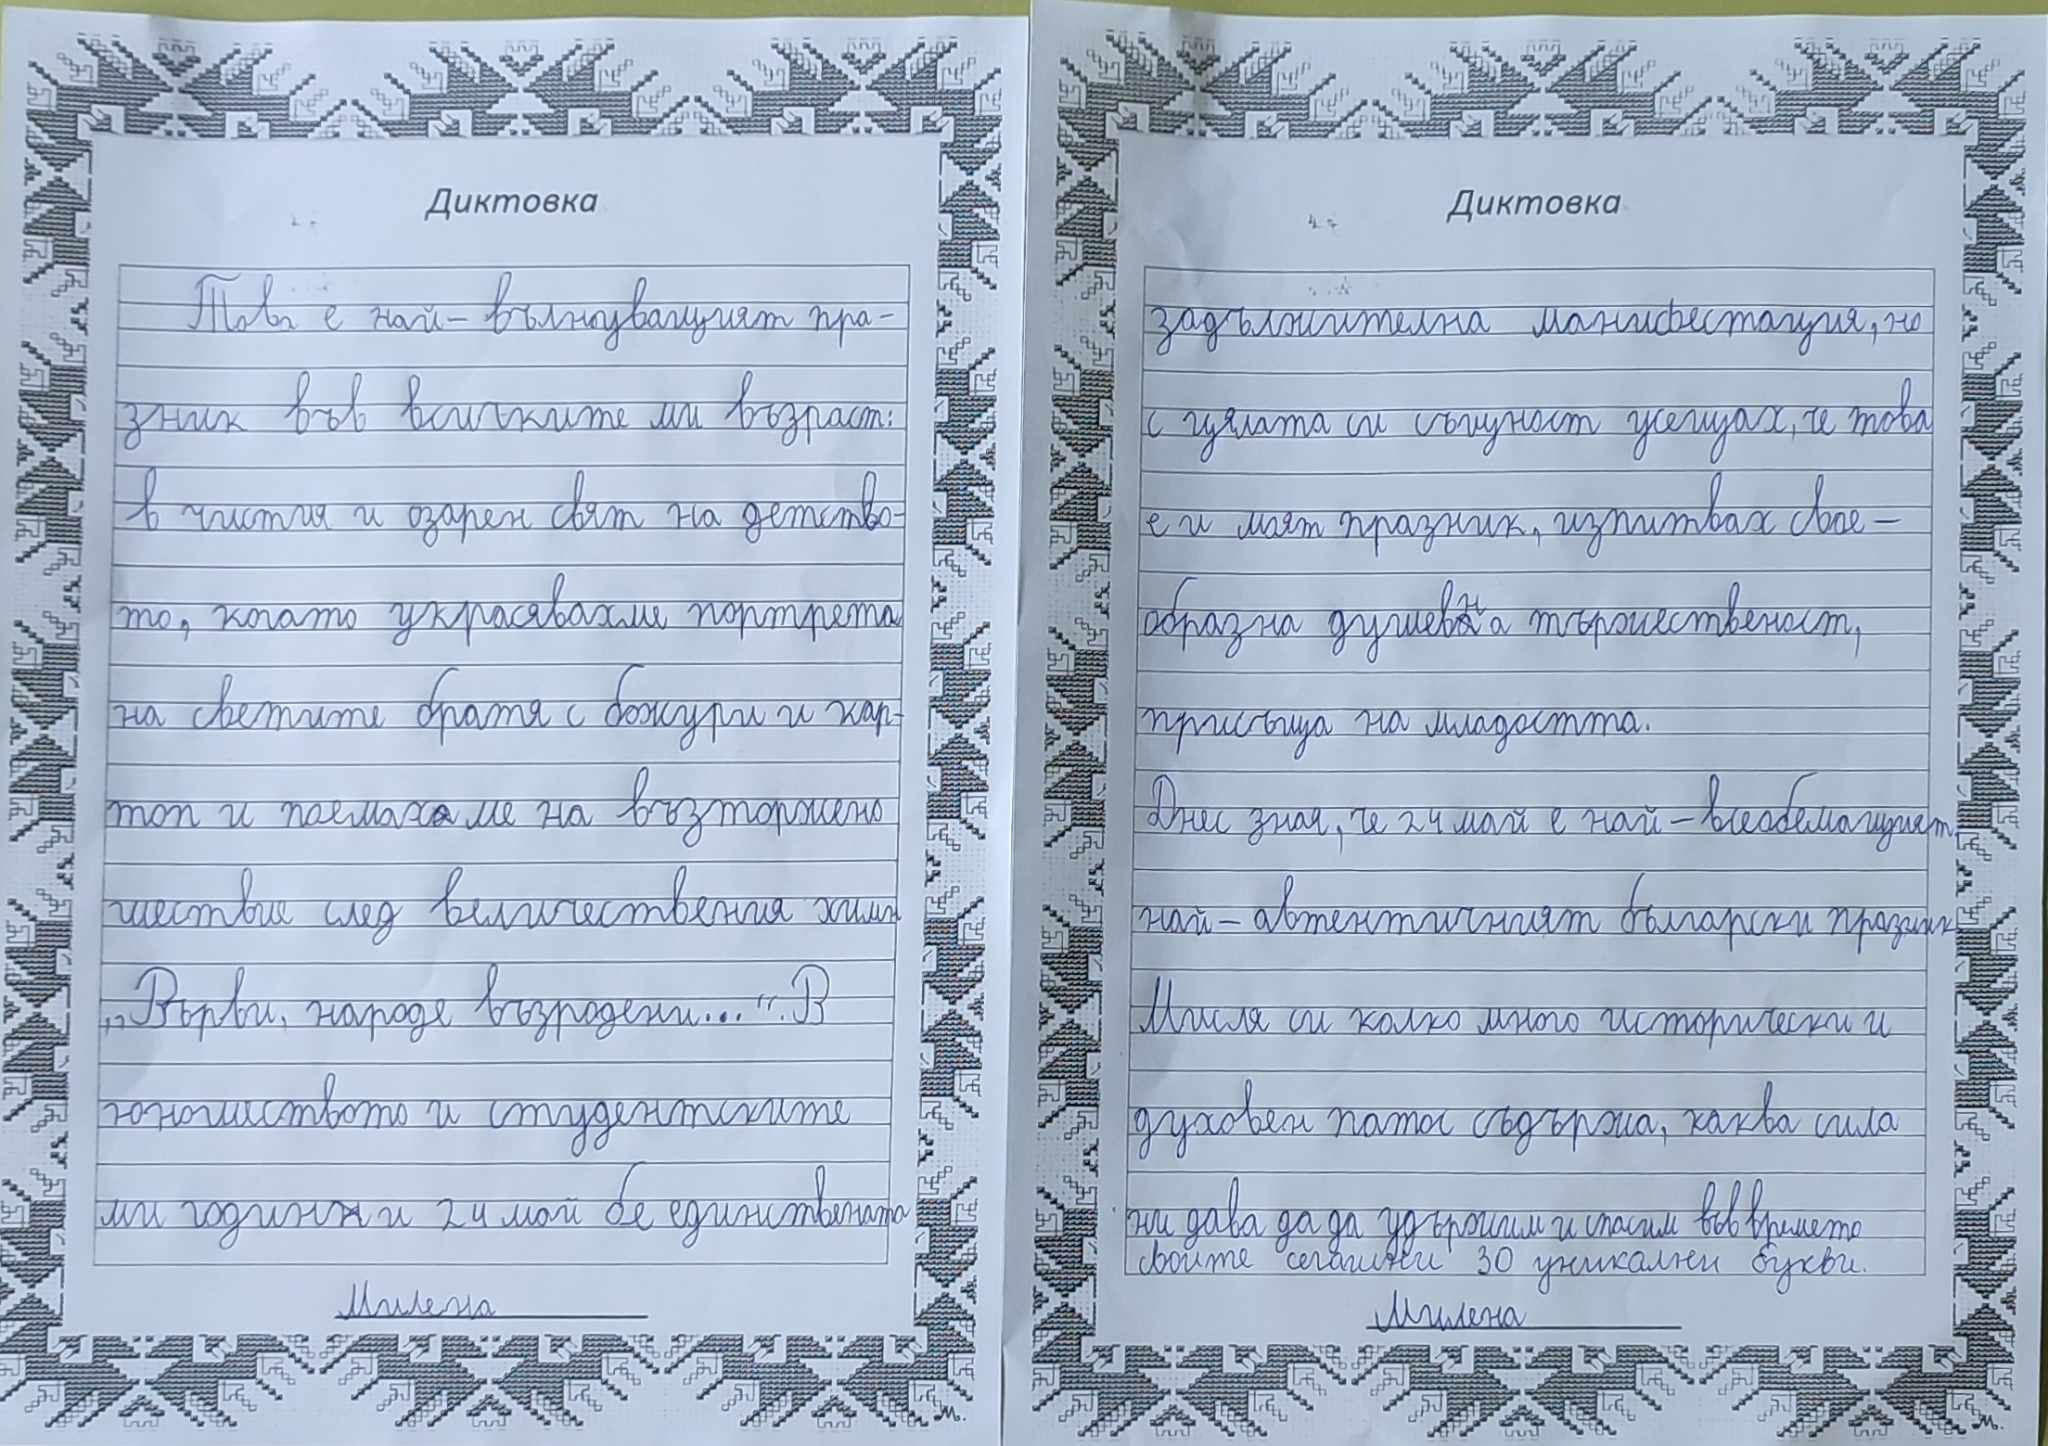 Диктовка
Това е най-вълнуващият пра-
зник във всичките ми възраст:
в чистия и озарен свят на детство-
то, когато украсявахме портрета
на светите братя с божури и кар-
топ и поемахаме на възторжено
шествие след величествения химн
„Върви, народе възродени...“. В
юношеството и студентските
ми години и 24 май бе единствената
Милена
Диктовка
задължителна манифестация, но
с цялата си същност усещах, че това
е и моят празник, изпитвах свое-
образна душевна тържественост,
присъща на младостта.
Днес зная, че 24 май е най-всеобемащият,
най-автентичният български празник
Мисля си колко много исторически и
духовен патос съдържа, каква сила
ни дава да да удържим и спасим във времето
своите сегашни 30 уникални букви.
Милена